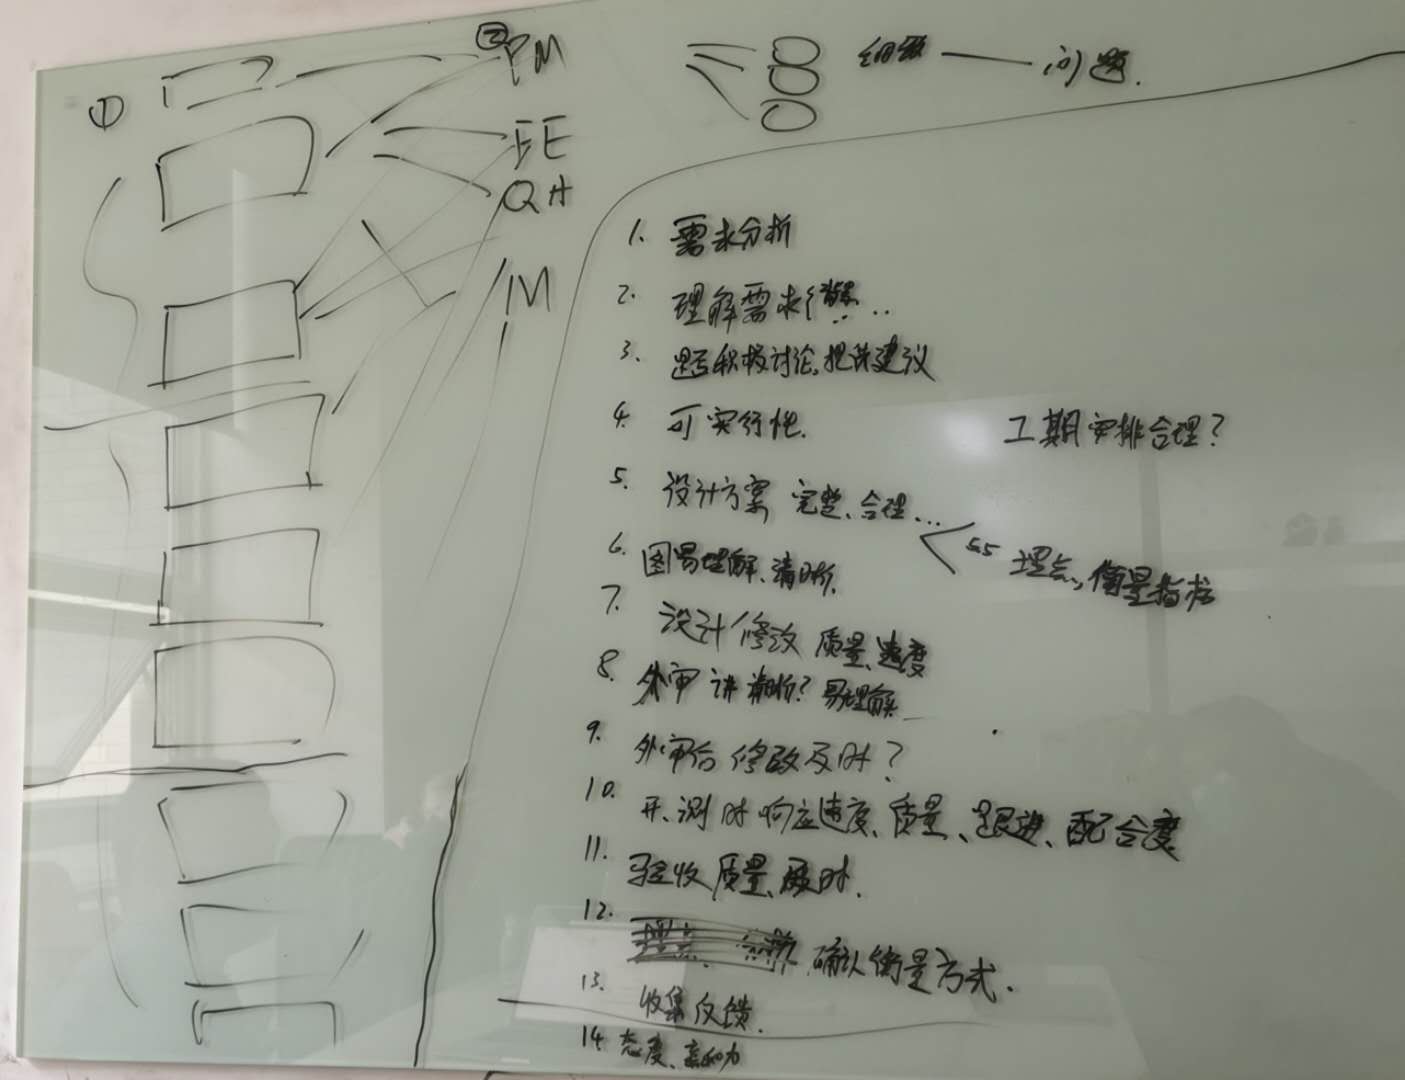 ①
② PM
EE
QA
M
细致 —— 问题.
1. 需求分析
2. 理解需求
3. 积极讨论,提供建议
4. 可实行性.
工期安排合理?
5. 设计方案 完整、合理...
5.5 埋点,衡量指标
6. 图易理解、清晰.
7. 设计修改 质量、速度
8. 外审 讲清晰? 易理解
9. 外审后 修改及时?
10. 开、测时响应速度、质量、跟进、配合度
11. 验收质量、及时.
12. 确认衡量方式.
13. 收集反馈.
14. 态度、亲和力